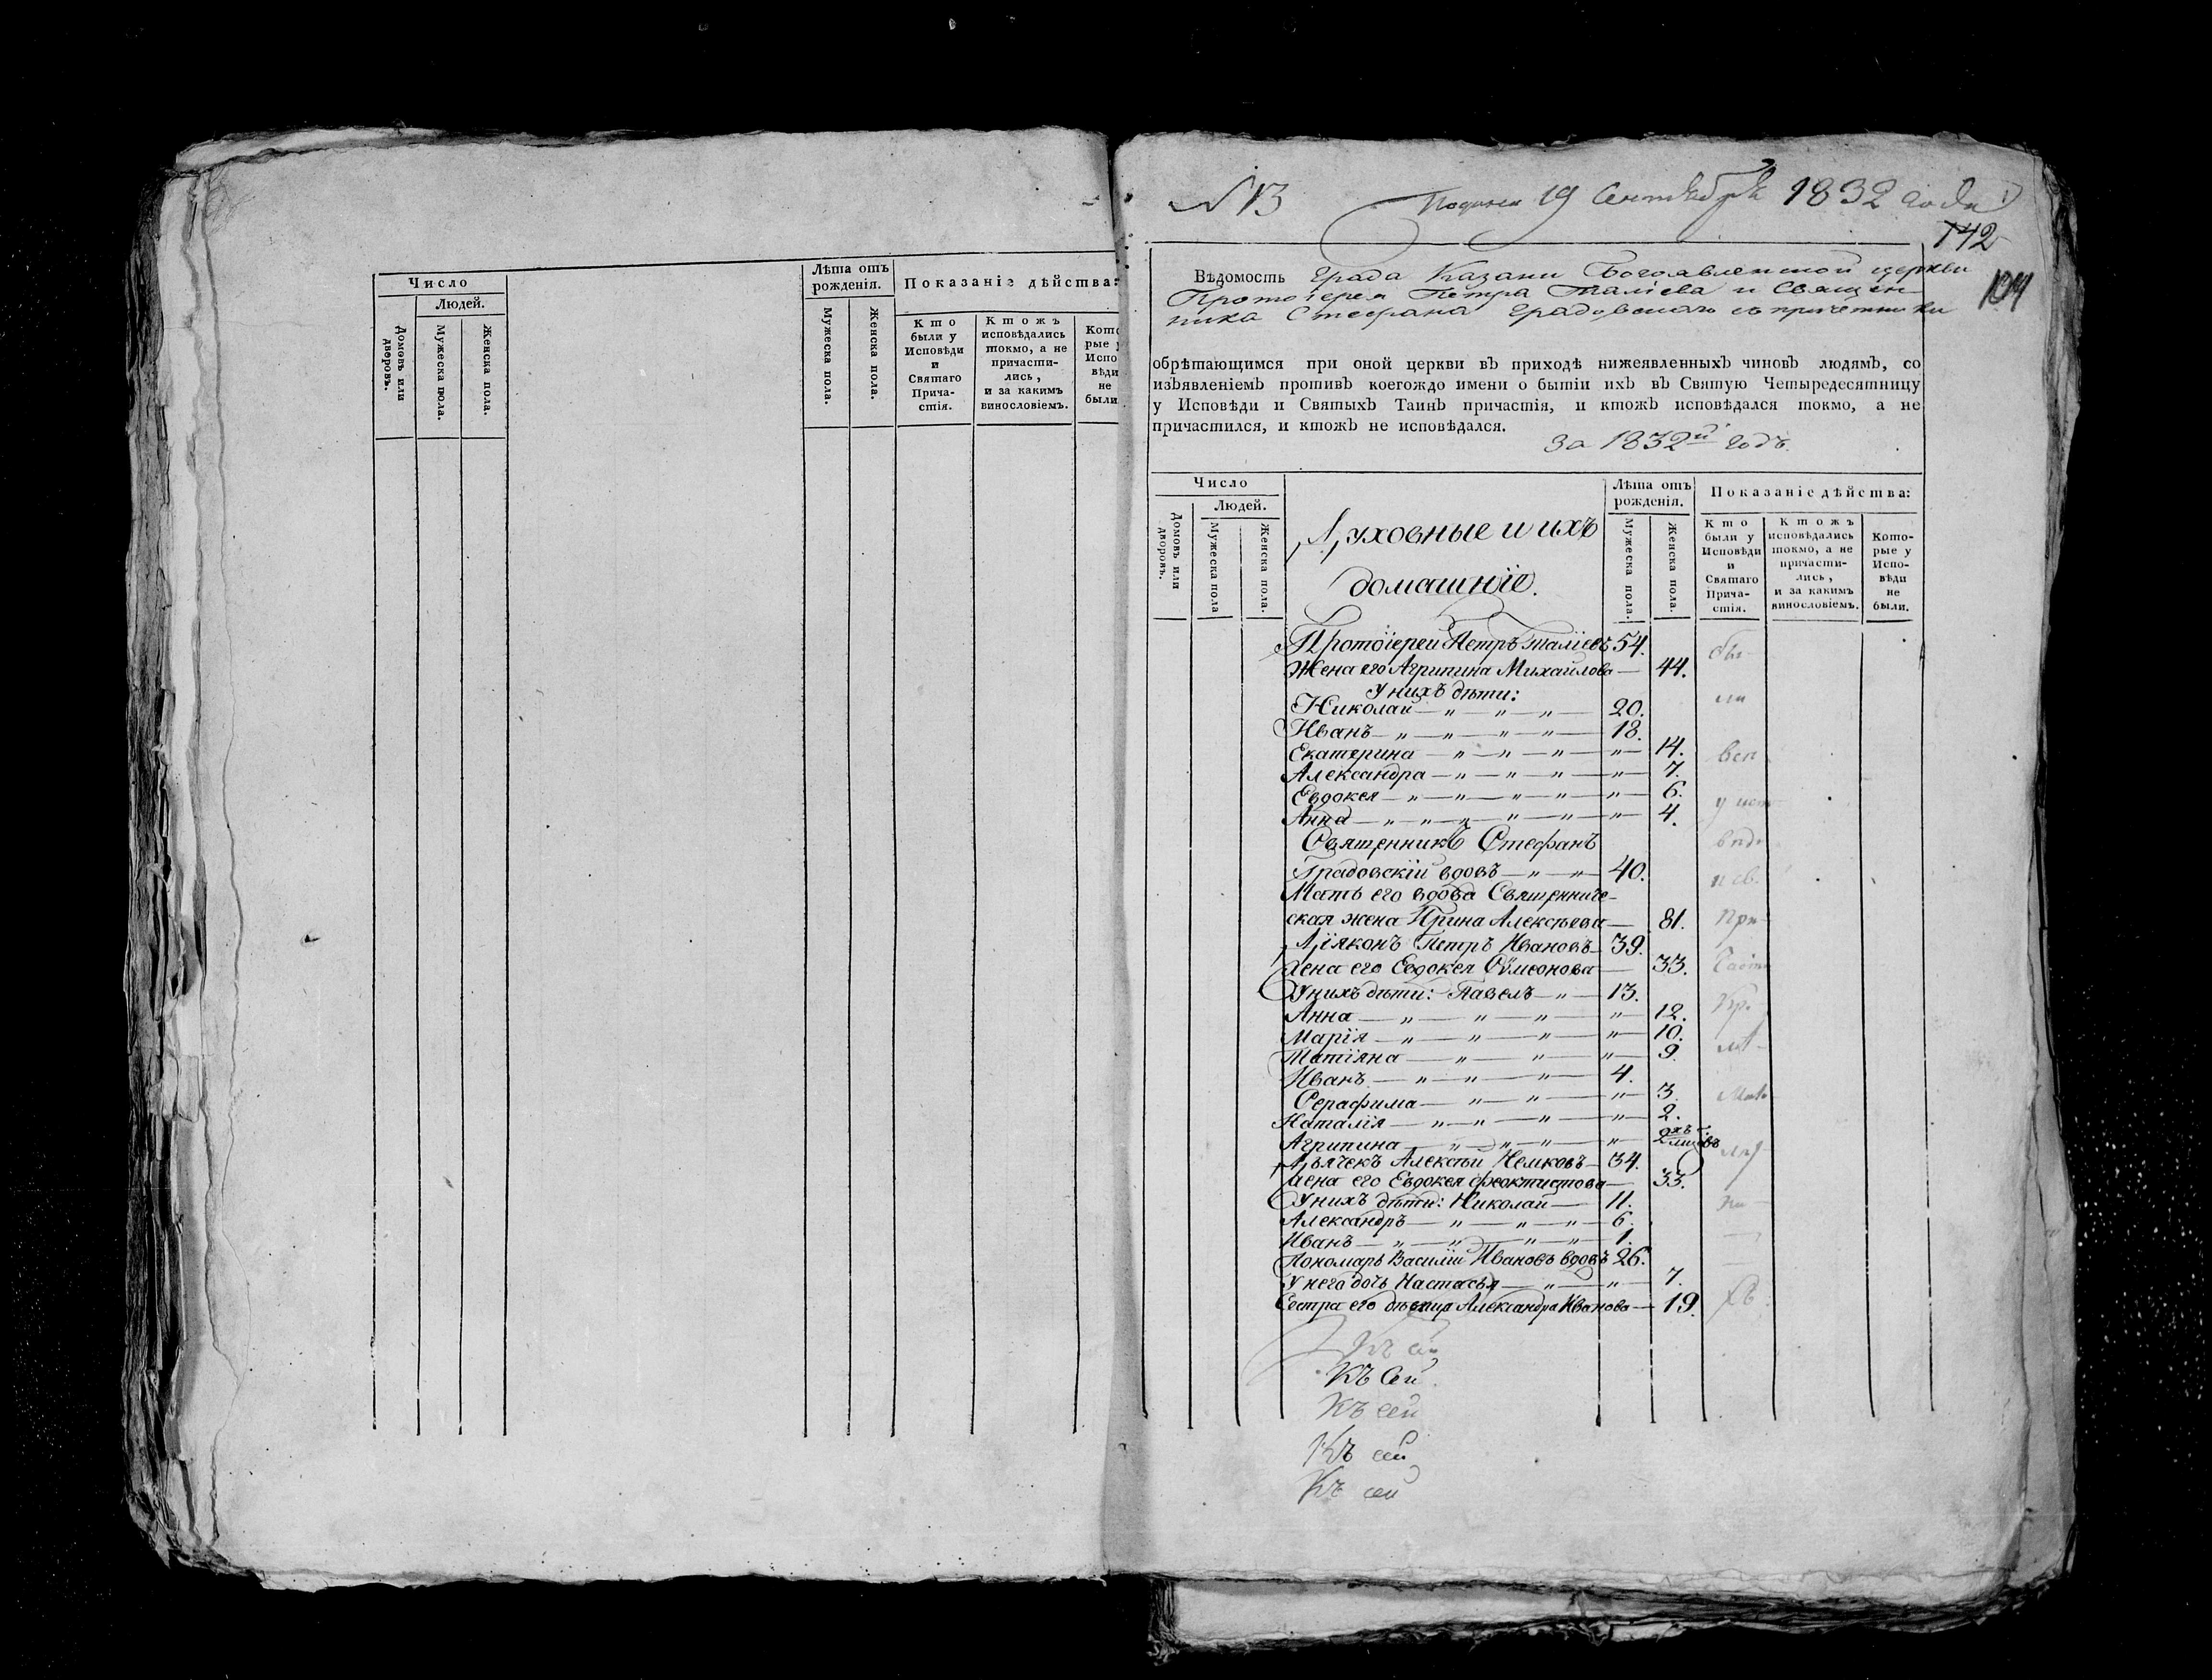 Число
Людей.
Домовъ или дворовъ.
Мужеска пола.
Женска пола.
Лѣта отъ
рожденія.
Мужеска пола.
Женска пола.
Показаніе дѣйства:
Кто
были у
Исповѣди
и
Святаго
Прича-
стія.
Ктожъ
исповѣдались
токмо, а не
причасти-
лись,
и за какимъ
винословіемъ.
Кото
рые у
Испо
вѣди
не
были
№ 13
19 Сентября 1832 года
142
Вѣдомость Града Казани Богоявленской церкви
Протоіерея Петра Таліева и Священ-
ника Стефана Градовскаго съ причетники
обрѣтающимся при оной церкви въ приходѣ нижеявленныхъ чиновъ людямъ, со
изъявленіемъ противъ коегождо имени о бытіи ихъ въ Святую Четыредесятницу
у Исповѣди и Святыхъ Таинъ причастія, и ктожъ исповѣдался токмо, а не
причастился, и ктожъ не исповѣдался.
За 1832й годъ.
Число
Людей.
Домовъ или дворовъ.
Мужеска пола
Женска пола.
Духовные и ихъ
домашніе.
Лѣта отъ
рожденія.
Мужеска пола.
Женска пола.
Показаніе дѣйства:
Кто
были у
Исповѣди
и
Святаго
Прича-
стія.
Ктожъ
исповѣдались
токмо, а не
причасти-
лись,
и за какимъ
винословіемъ.
Кото-
рые у
Испо-
вѣди
не
были.
Протоіереи Петръ Таліевъ 54.
Жена его Агрипина Михайлова — 44.
У нихъ дѣти:
Николай — „ — „ — „ — 20.
Иванъ — „ — „ — „ — „ — 18.
Екатерина — „ — „ — „ — „ — 14.
Александра — „ — „ — „ — „ — 7.
Евдокея — „ — „ — „ — „ — „ — 6.
Анна — „ — „ — „ — „ — „ — „ — 4.
Священникъ Стефанъ
Градовскій вдовъ — „ — „ — 40.
Мать его вдова Священниче-
ская жена Ирина Алексѣева — 81.
Діяконъ Петръ Ивановъ — 39.
Жена его Евдокея Сѵмеонова — 33.
У нихъ дѣти: Павелъ — „ — 13.
Анна — „ — „ — „ — „ — 12.
Марія — „ — „ — „ — „ — 10.
Татіяна — „ — „ — „ — 9.
Иванъ — „ — „ — „ — 4.
Серафима — „ — „ — „ — 3.
Наталія — „ — „ — „ — „ — 2.
Агрипина — „ — „ — „ — „ —
Дьячекъ Алексѣй Немковъ — 34.
Жена его Евдокея Феоктистова — 33.
У нихъ дѣти: Николай — 11.
Александръ — „ — „ — „ — 6.
Иванъ — „ — „ — „ — „ — 1.
Пономарь Василій Ивановъ вдовъ 26.
У него дочь Настасья — „ — „ — 7.
Сестра его дѣвица Александра Иванова — 19.
бы-
ли
всѣ
при-
Къ сей
Къ Сей
Къ сей
Къ сей
Къ сей